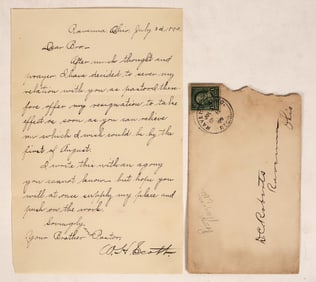 Ravenna, Ohio, July 2d, 19
Dear Bro—
After much thought and
prayer I have decided to sever my
relation with you as pastor & there
fore offer my resignation to take
effect as soon as you can relieve
me which I wish could be by the
first of August.
I write this with an agony
you cannot know but hope you
will at once supply my place and
push on the work.
Lovingly,
Your Brother & Pastor,
W. H. Scott
D C Roberts
Ravenna
Ohio